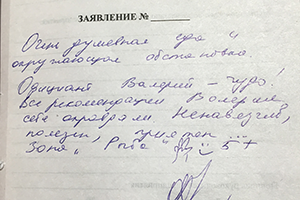 ЗАЯВЛЕНИЕ № ____
Очень душевная еда и
окружающая обстановка
Официант Валерий – чудо!
Все рекомендации Валерия
себя оправдали. Ненавязчив,
полезен, приятен...
Зона „Рыба" 5+